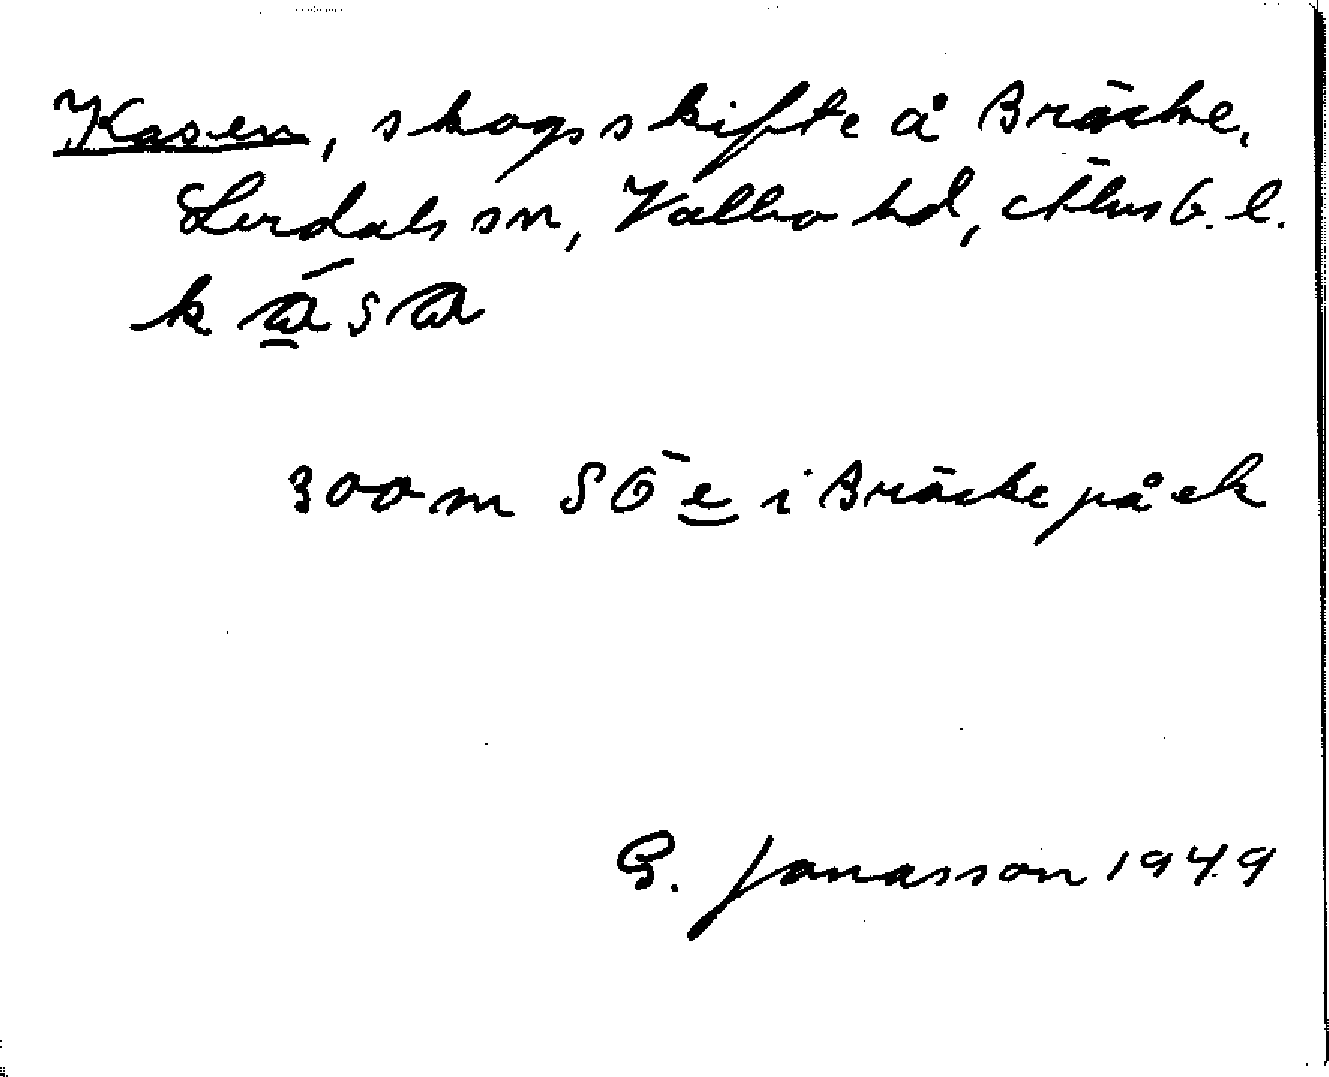 Kasen, skogsskifte å Bräcke,
Lerdals sn, Valbo hd, Älvsb. l.
kása
300 m SÖ e i Bräcke på ek
G. Jonasson 1949